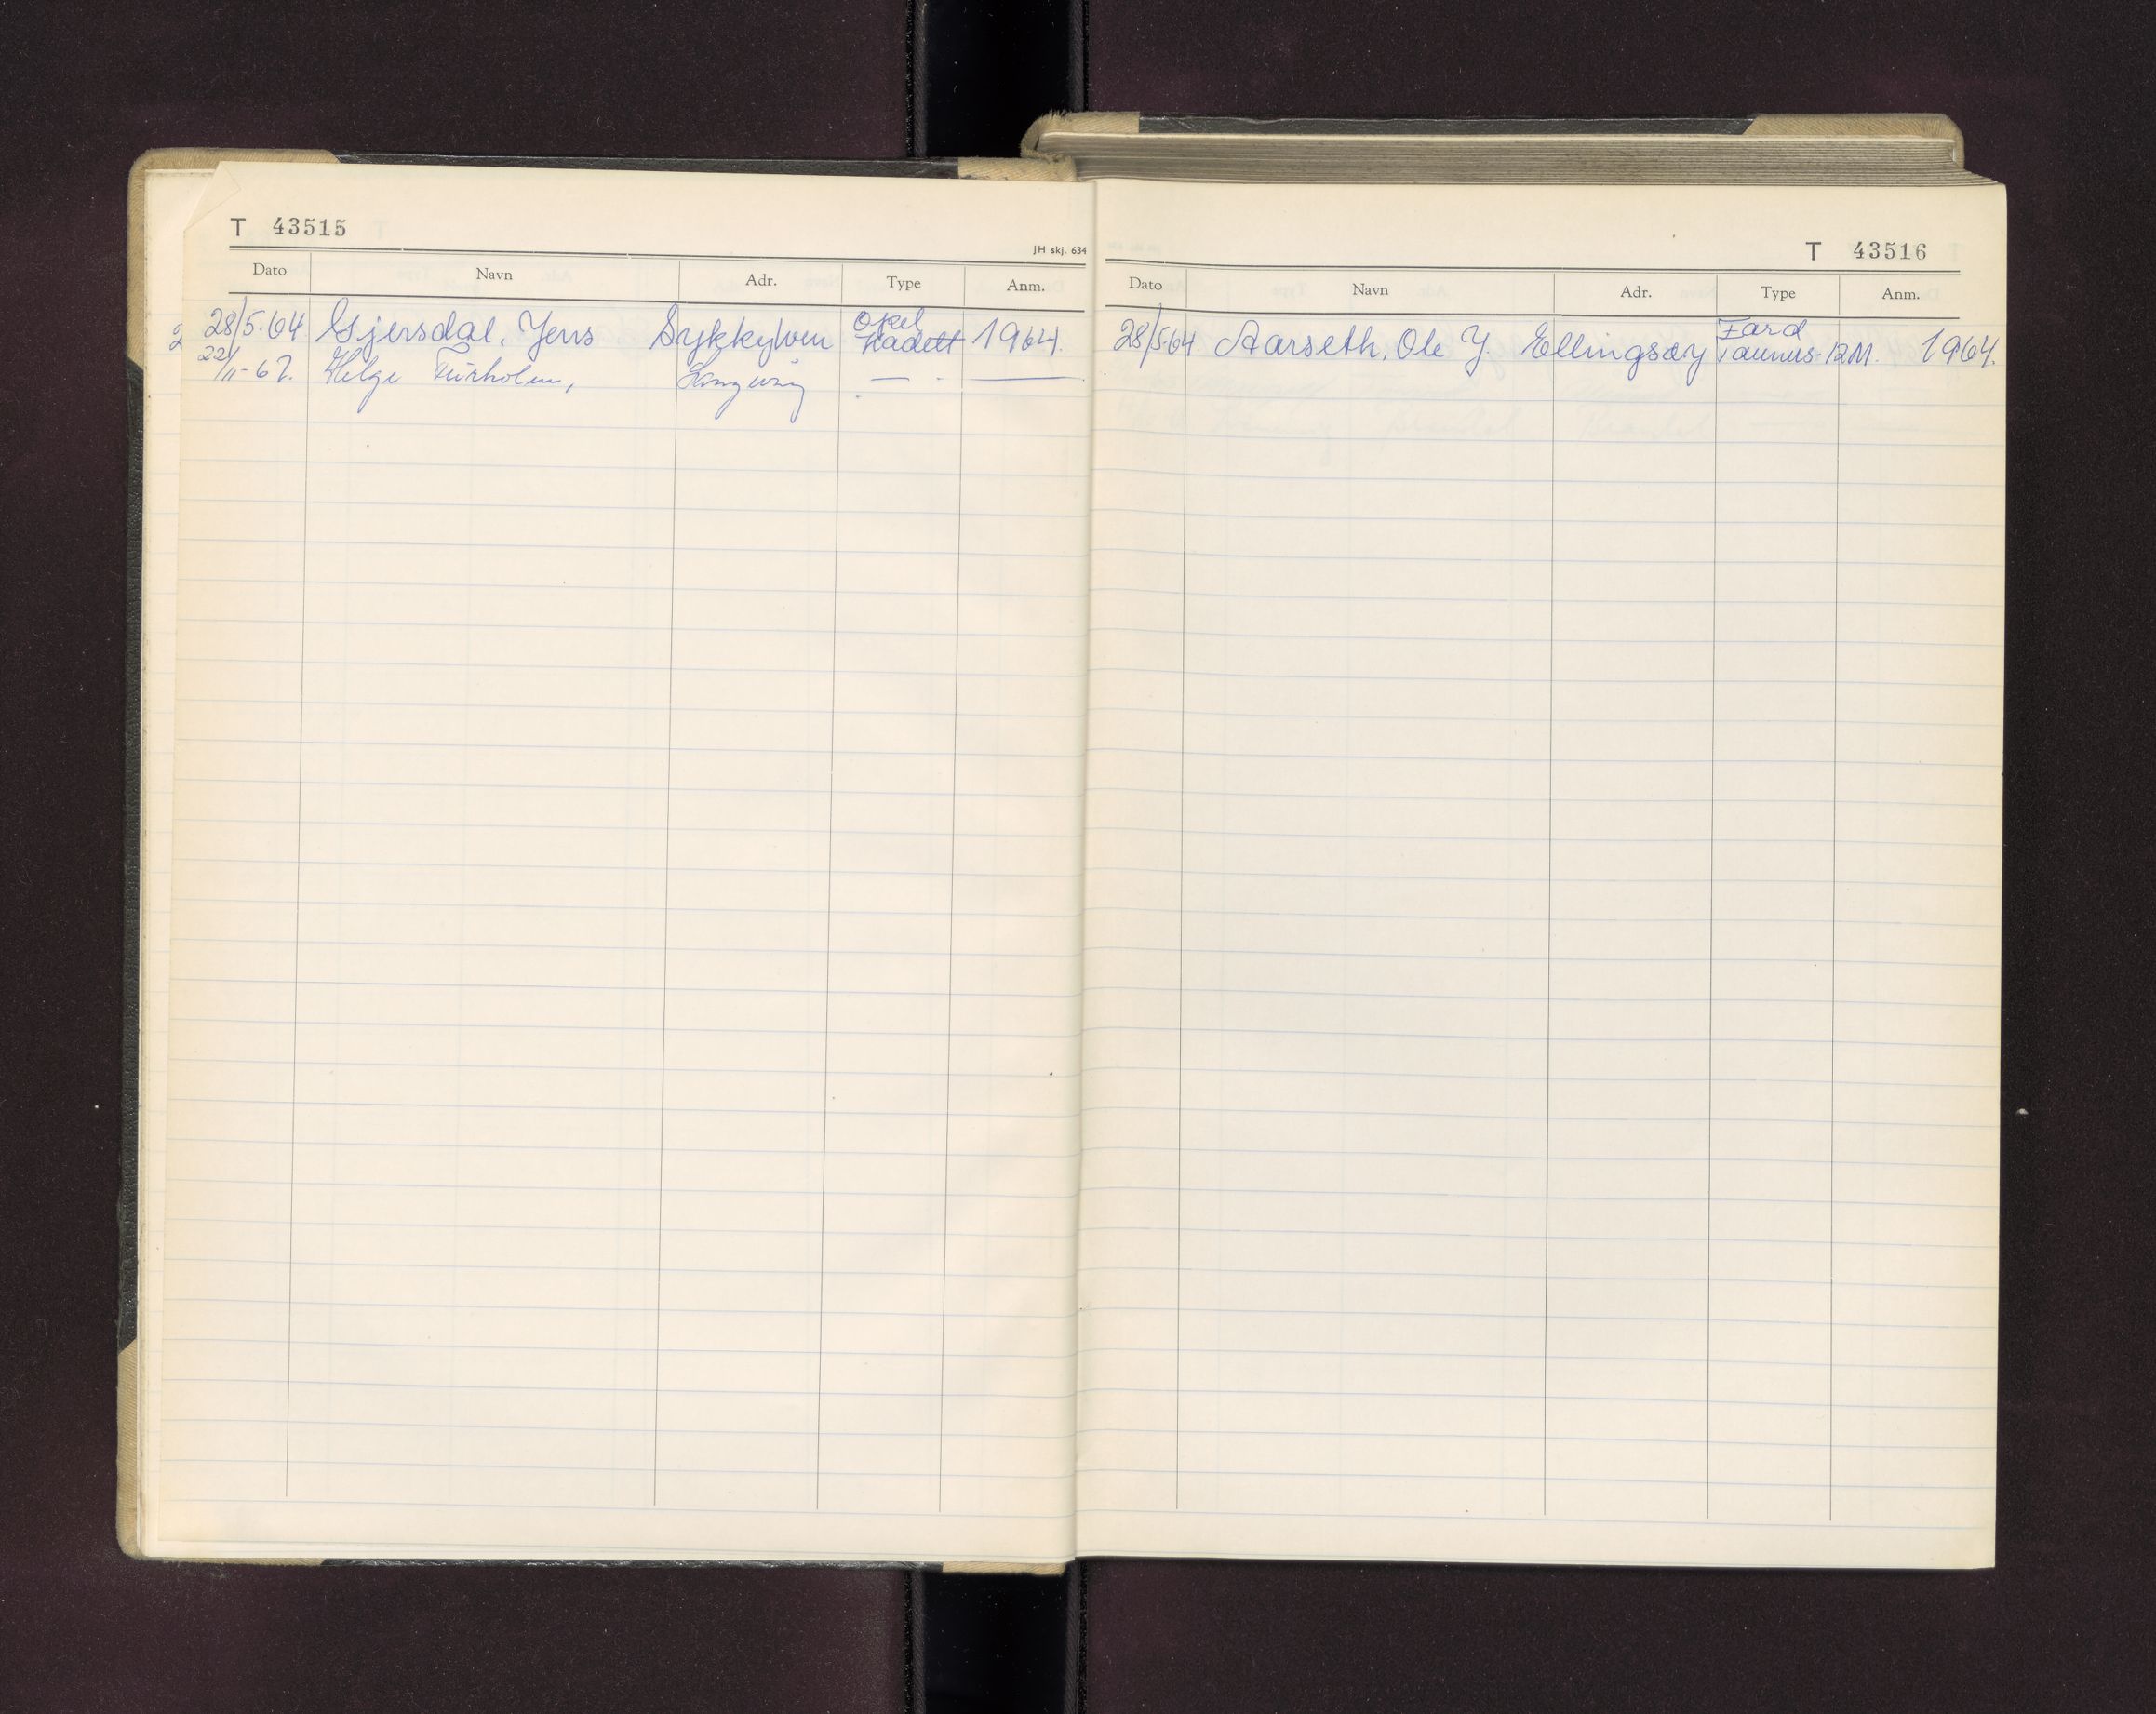 T 43515
JH skj. 634
Dato Navn Adr. Type Anm.
28/5.64 Gjersdal, Jens Sykkylven Opel Kadett 1964.
22/11-67. Helge — . —
T 43516
Dato Navn Adr. Type Anm.
28/5.64 Aarseth, Ole J. Ellingsøy Ford Taunus-12M. 1964.